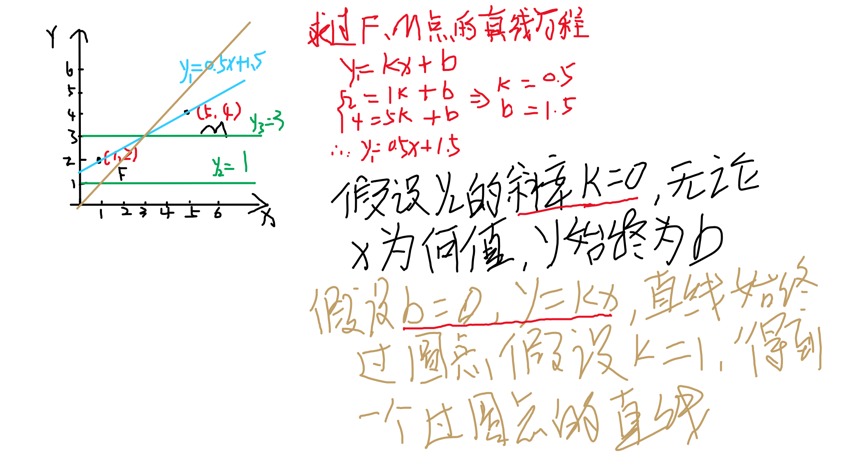 Y
6
5
4
3
2
1
1 2 3 4 5 6
X
y₁=0.5x+1.5
(5,4)
M
y₃=3
(1,2)
F
y₂=1
求过F、M点的直线方程
y₁=kx+b
2=1k+b ⇒ k=0.5
4=5k+b b=1.5
∴ y₁=0.5x+1.5
假设y₂的斜率k=0,无论
x为何值,y始终为b
假设b=0,y=kx,直线始终
过圆点,假设k=1,得到
一个过圆点的直线